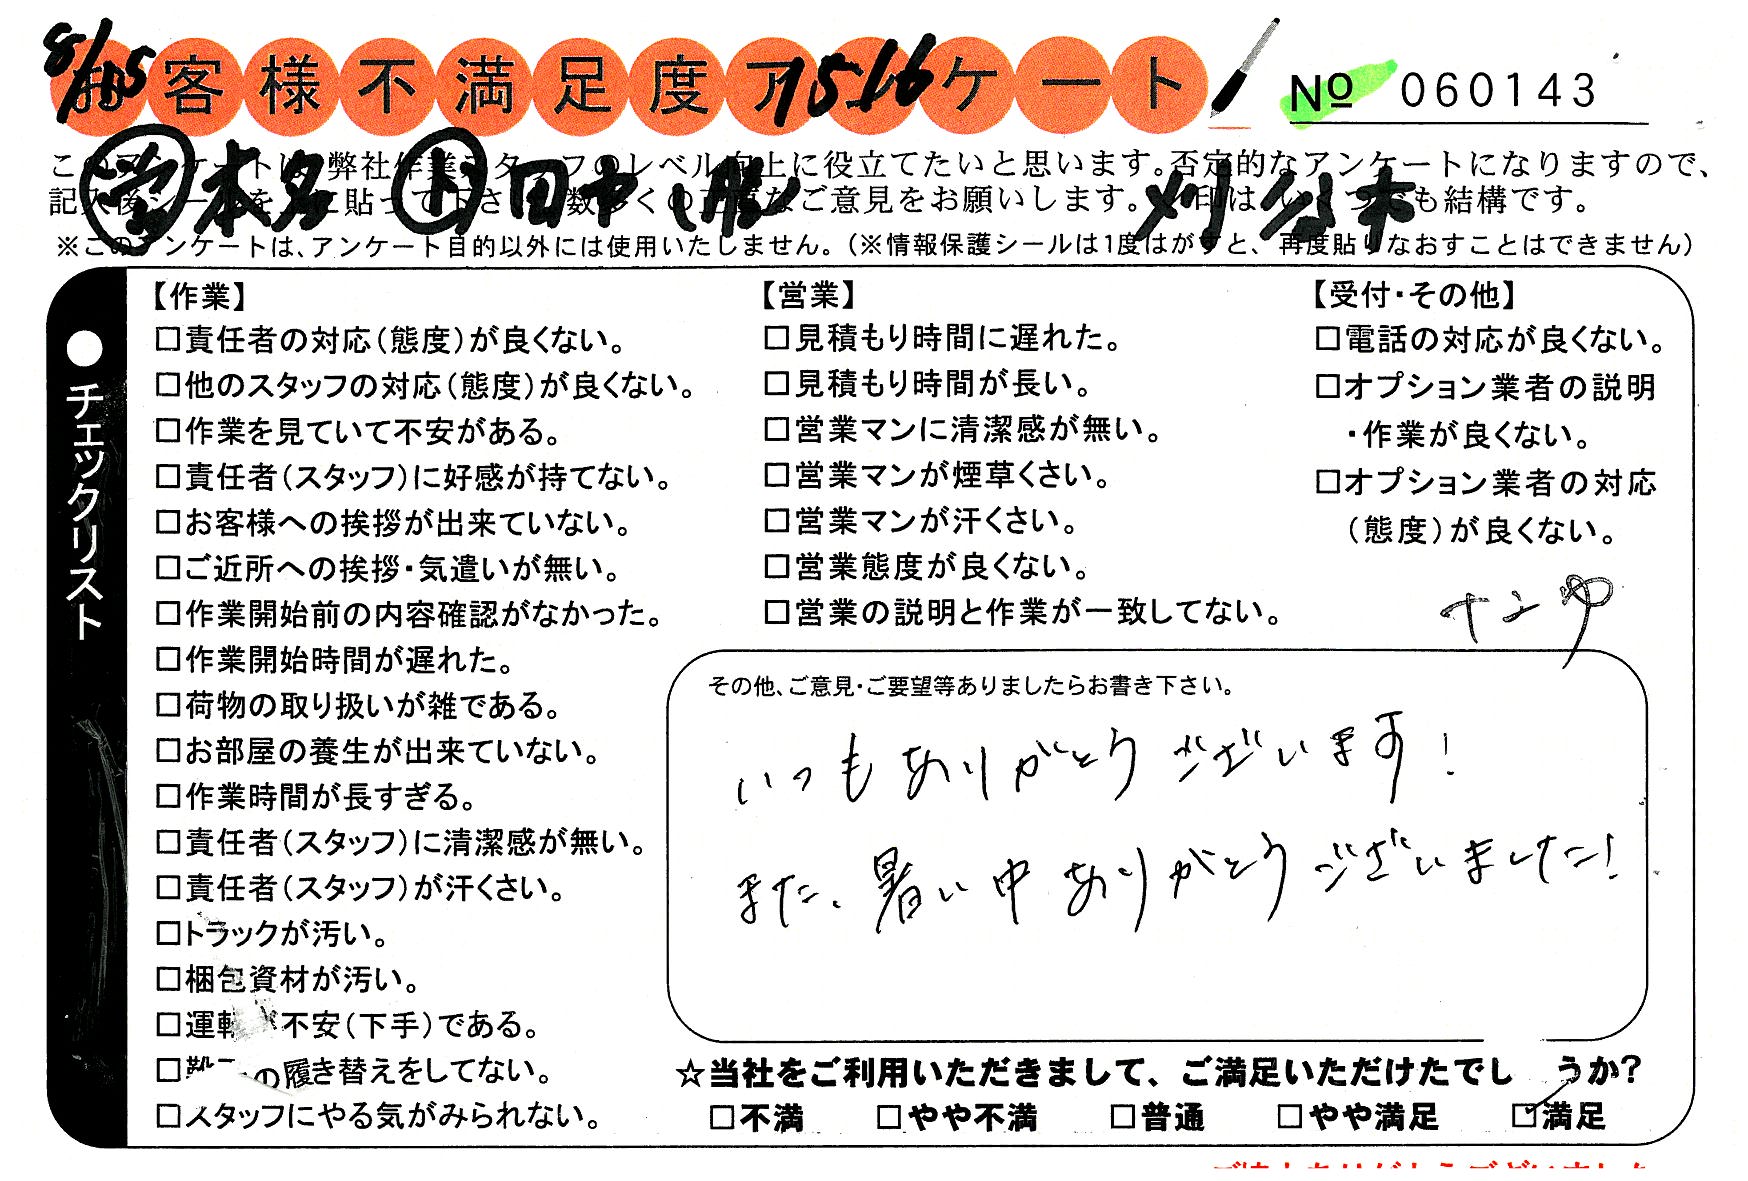 8/25 お客様不満足度アンケート 1516 № 060143
このアンケートは、弊社作業スタッフのレベル向上に役立てたいと思います。否定的なアンケートになりますので、
営 本名 ト 田中
記入後シールを上に貼って下さい。数多くの正直なご意見をお願いします。印は、いくつでも結構です。
※このアンケートは、アンケート目的以外には使用いたしません。(※情報保護シールは1度はがすと、再度貼りなおすことはできません)
●チェックリスト
【作業】
□責任者の対応(態度)が良くない。
□他のスタッフの対応(態度)が良くない。
□作業を見ていて不安がある。
□責任者(スタッフ)に好感が持てない。
□お客様への挨拶が出来ていない。
□ご近所への挨拶・気遣いが無い。
□作業開始前の内容確認がなかった。
□作業開始時間が遅れた。
□荷物の取り扱いが雑である。
□お部屋の養生が出来ていない。
□作業時間が長すぎる。
□責任者(スタッフ)に清潔感が無い。
□責任者(スタッフ)が汗くさい。
□トラックが汚い。
□梱包資材が汚い。
□運転が不安(下手)である。
□靴下の履き替えをしてない。
□スタッフにやる気がみられない。
【営業】
□見積もり時間に遅れた。
□見積もり時間が長い。
□営業マンに清潔感が無い。
□営業マンが煙草くさい。
□営業マンが汗くさい。
□営業態度が良くない。
□営業の説明と作業が一致してない。
【受付・その他】
□電話の対応が良くない。
□オプション業者の説明
・作業が良くない。
□オプション業者の対応
(態度)が良くない。
その他、ご意見・ご要望等ありましたらお書き下さい。
いつもありがとうございます!
また、暑い中ありがとうございました!
☆当社をご利用いただきまして、ご満足いただけたでしょうか?
□不満 □やや不満 □普通 □やや満足 ☑満足